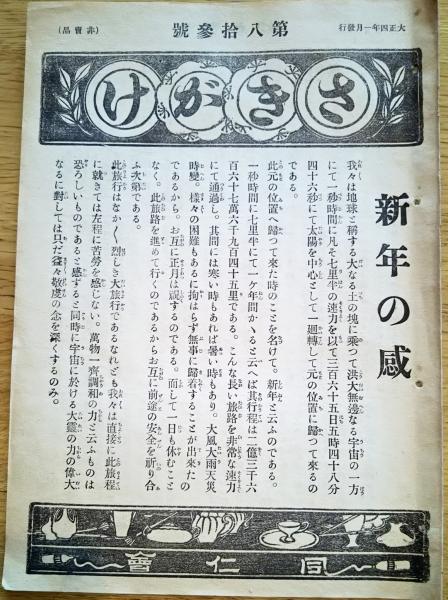 大正四年一月發行
第八拾參號
(非賣品)
さきがけ
新年の感
我々は地球と稱する大なる土の塊に乘つて洪大無邊なる宇宙の一方
にて一秒時間に凡そ七里半の速力を以て三百六十五日五時四十八分
四十六秒にて太陽を中心として一廻轉して元の位置に歸つて來るの
である。
此元の位置へ歸つて來た時のことを名けて。新年と云ふのである。
一秒時間に七里半にて一ケ年間かゝると云へば其行程は二億三千六
百六十七萬六千九百四十五里である。こんな長い旅路を非常な速力
にて通過し。其間には寒い時もあれば暑い時もあり。大風大雨天災
時變。樣々の困難もあるに拘はらず無事に歸着することが出來たの
であるから。お互に正月は祝するのである。而して一日も休むこと
なく。此旅路を進めて行くのであるからお互に前途の安全を祈り合
ふ次第である。
此旅行はなか〱烈しき大旅行であるなれども我々は直接に此旅程
に就きては左程に苦勞を感じない。萬物一齊調和の力と云ふものは
恐ろしいものであると感ずると同時に宇宙に於ける大靈の力の偉大
なるに對しては只だ益々敬虔の念を深くするのみ。
同仁會